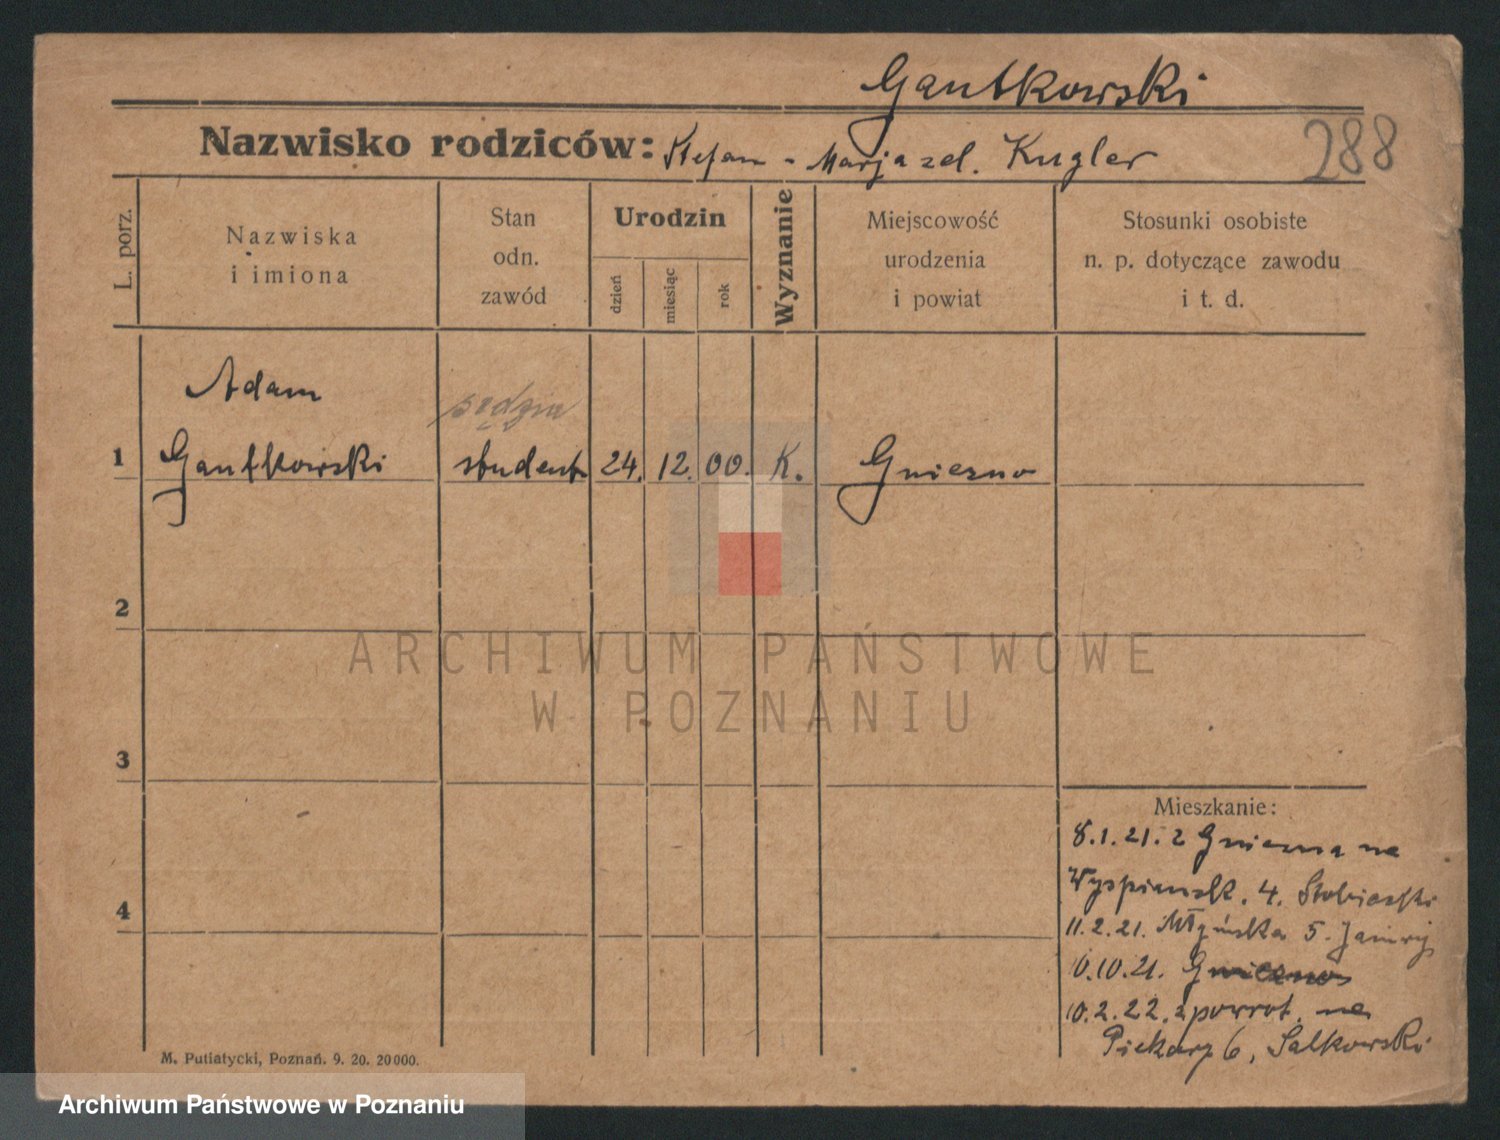 Gantkowski
Nazwisko rodziców: Stefan - Marja zd. Kugler
288
L. porz.
Nazwiska
i imiona
Stan
odn.
zawód
Urodzin
dzień
miesiąc
rok
Wyznanie
Miejscowość
urodzenia
i powiat
Stosunki osobiste
n. p. dotyczące zawodu
i t. d.
Adam
sędzia
1 Gantkowski student 24. 12. 00. K. Gniezno
2
ARCHIWUM PAŃSTWOWE
W POZNANIU
3
Mieszkanie:
8.1.21. z Gniezna na
Wyspiańsk. 4.
4
11.2.21. Młyńska 5.
10.10.21. Gniezno
10.2.22. z powrot. na
Piekary 6, Salkowski
M. Putiatycki, Poznań. 9. 20. 20000.
Archiwum Państwowe w Poznaniu